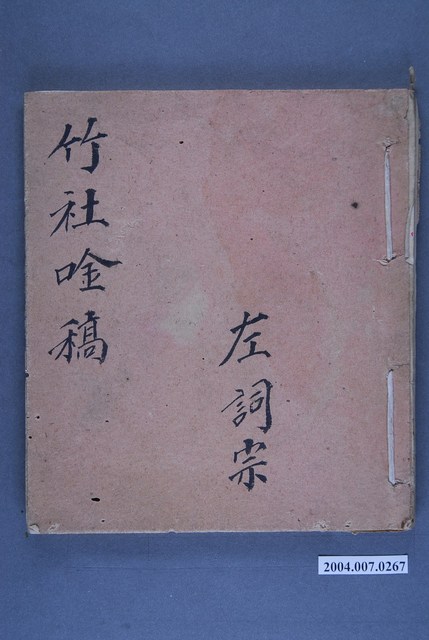 竹社唫稿
左詞宗
2004.007.0267